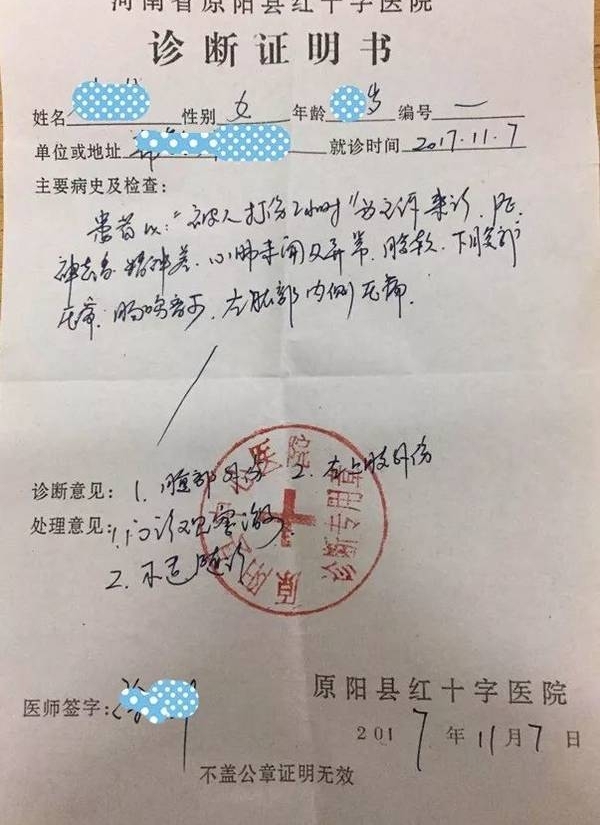 河南省原阳县红十字医院
诊断证明书
姓名 性别 女 年龄 岁 编号 一
单位或地址 就诊时间 2017.11.7
主要病史及检查:
患者以:“被人打伤2小时”为主诉来诊.PE.
神志清.精神差.心肺未闻及异常.腹软.下腹部
压痛.肠鸣音可.左肱部内侧压痛.
诊断意见: 1. 腹部外伤 2. 左上肢外伤
处理意见: 1. 门诊观察
2. 不适随诊
原阳 医院
诊断专用章
医师签字:
原阳县红十字医院
2017年11月7日
不盖公章证明无效